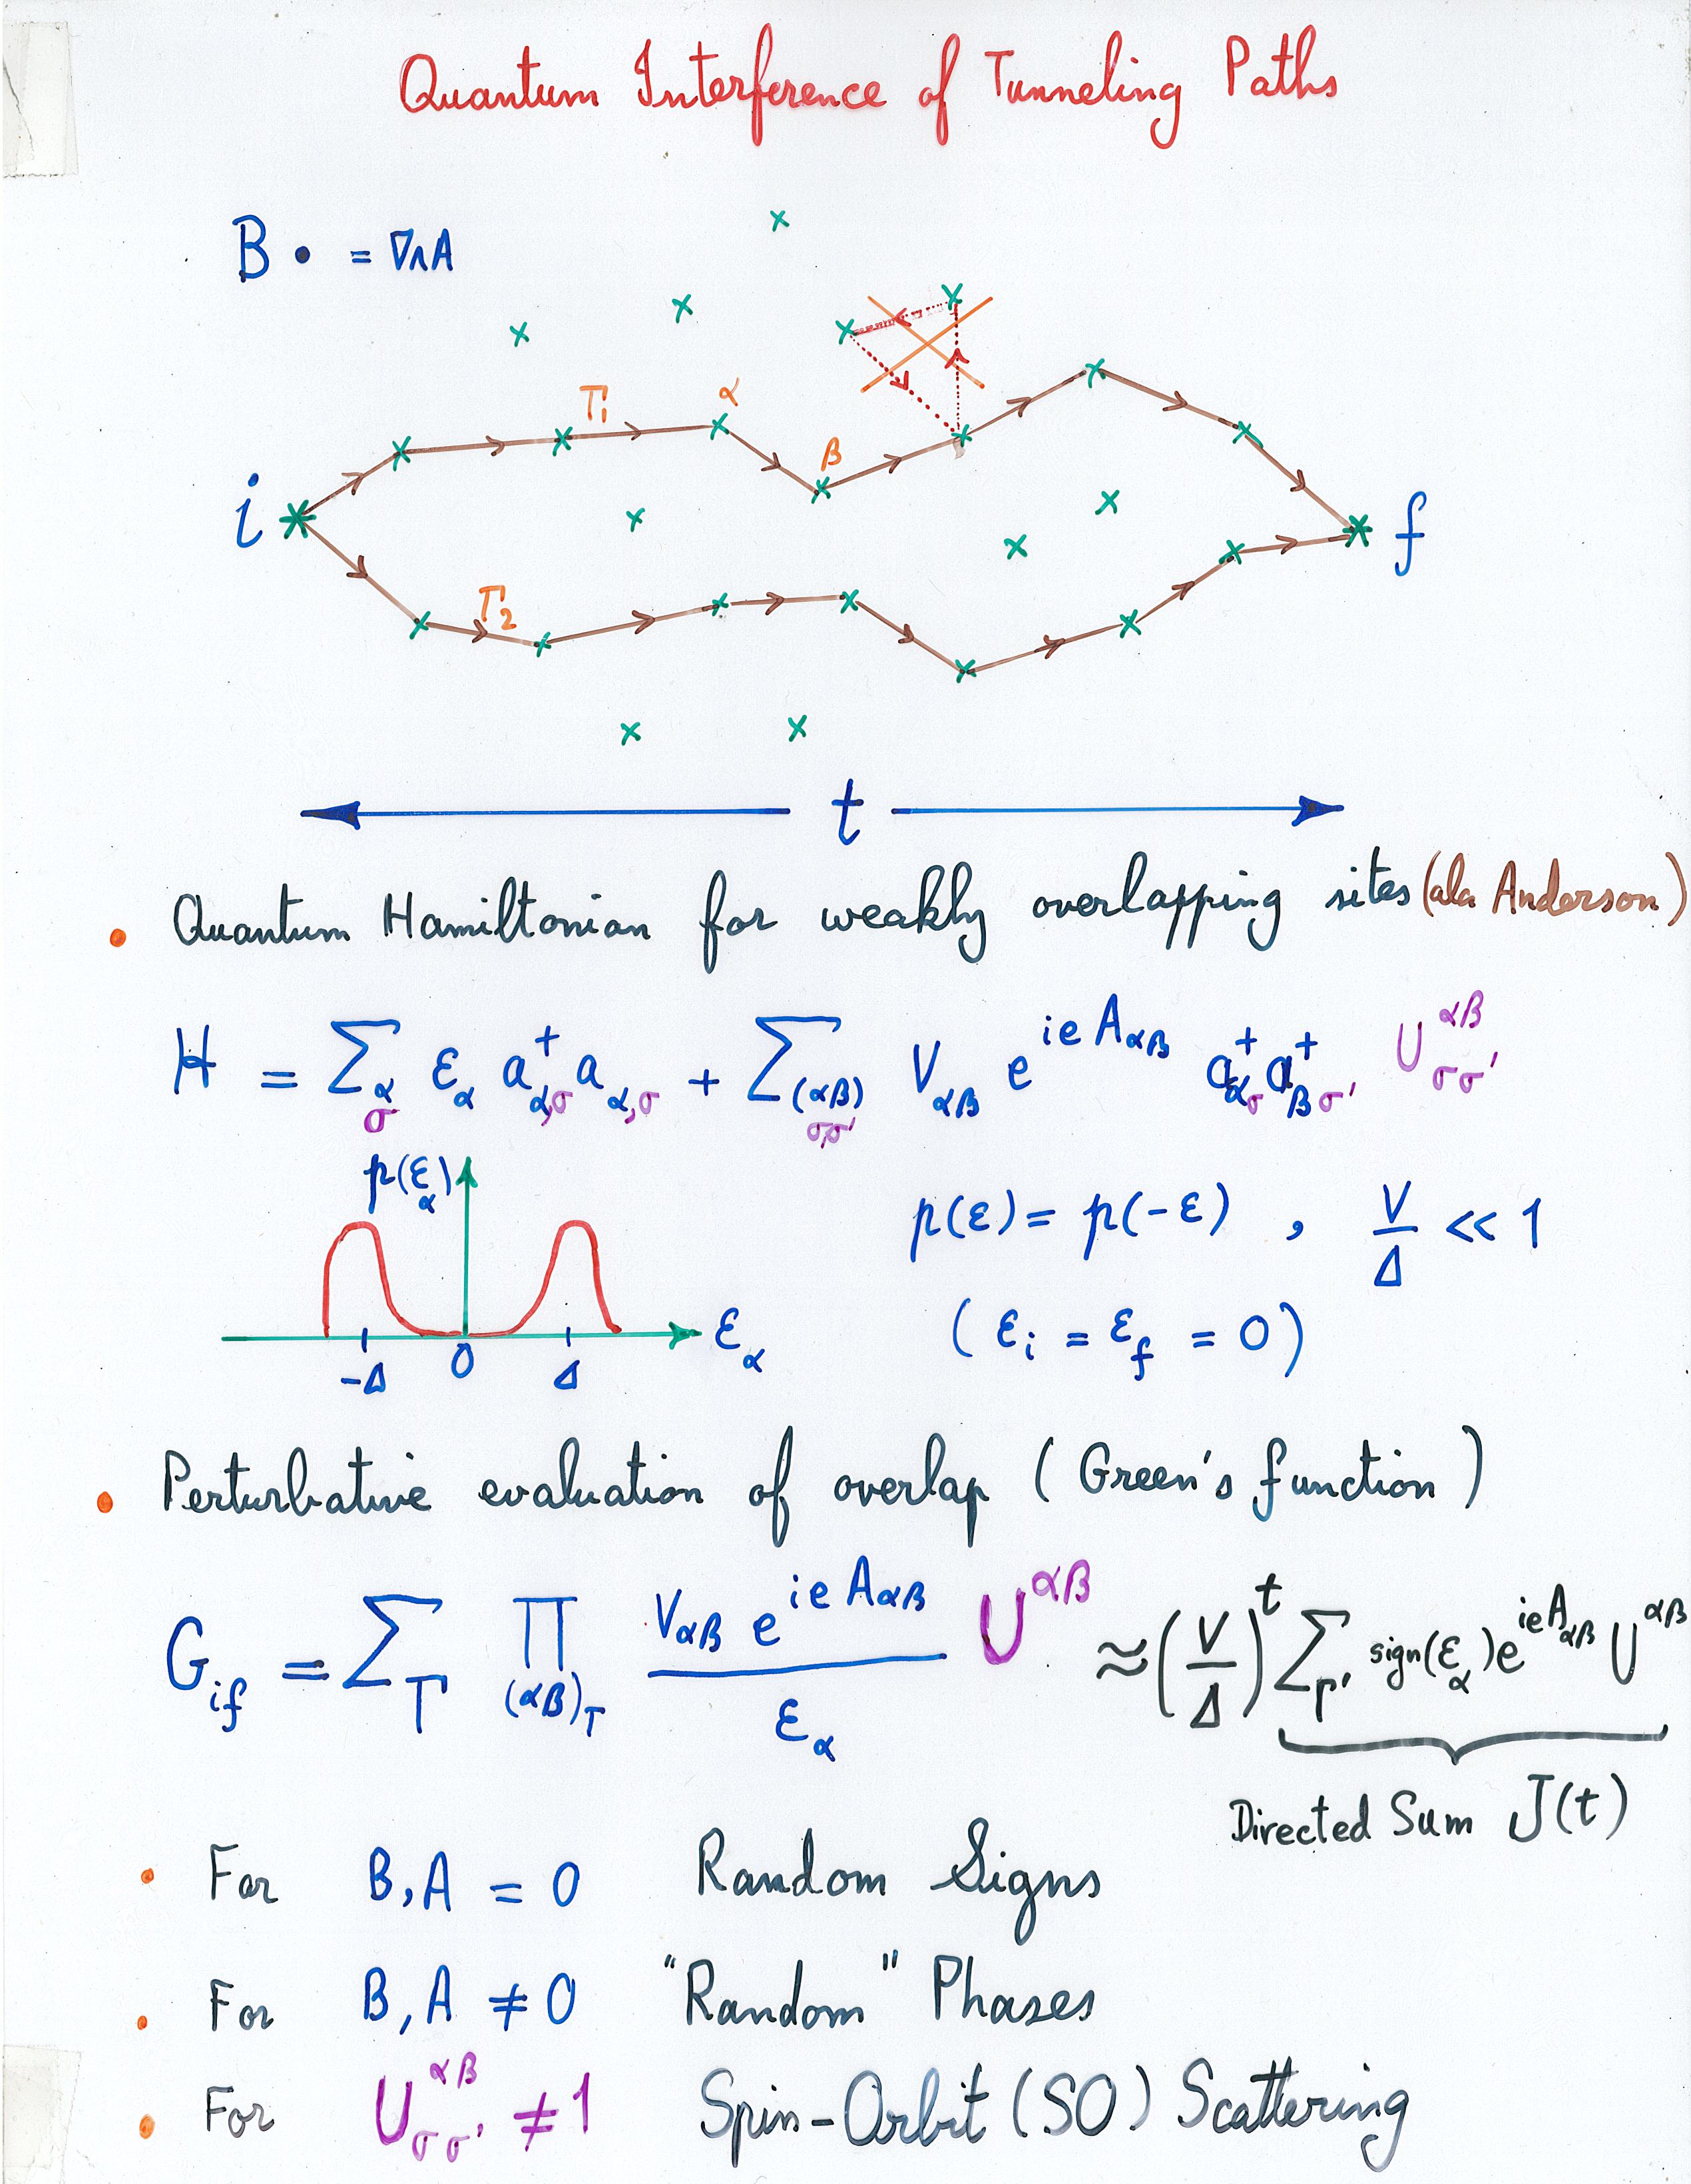 Quantum Interference of Tunneling Paths
B • = ∇∧A
T1 α
β
i
f
T2
t
• Quantum Hamiltonian for weakly overlapping sites (ala Anderson)
H = ∑_{α σ} ε_α a⁺_{α,σ} a_{α,σ} + ∑_{(αβ) σ,σ'} V_{αβ} e^{ieA_{αβ}} a⁺_{ασ} a⁺_{βσ'} U^{αβ}_{σσ'}
p(ε_α)
p(ε) = p(-ε) , V/Δ << 1
-Δ 0 Δ ε_α
(ε_i = ε_f = 0)
• Perturbative evaluation of overlap (Green's function)
G_{if} = ∑_T ∏_{(αβ)_T} V_{αβ} e^{ieA_{αβ}} / ε_α U^{αβ} ≈ (V/Δ)^t ∑_{T'} sign(ε_α) e^{ieA_{αβ}} U^{αβ}
Directed Sum J(t)
• For B,A = 0 Random Signs
• For B,A ≠ 0 "Random" Phases
• For U^{αβ}_{σσ'} ≠ 1 Spin-Orbit (SO) Scattering